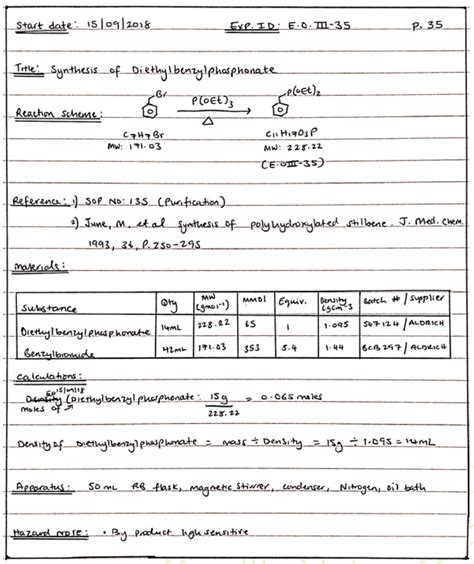 Start date: 15/09/2018 Exp. ID: E.O.III-35 P. 35
Title: Synthesis of Diethylbenzylphosphonate
Br P(OEt)3 P(OEt)2
Reaction scheme: Δ
C7H7Br C11H17O3P
MW: 171.03 MW: 228.22
(E.OIII-35)
Reference: 1) SOP NO: 135 (Purification)
2) June, M, et al synthesis of polyhydroxylated stilbene. J. Med. Chem.
1993, 36, P. 250-295
Materials:
Substance Qty MW (gmol-1) mmol Equiv. Density (gcm-3 Batch # / Supplier
Diethylbenzylphosphonate 14mL 228.22 65 1 1.095 507124/ALDRICH
Benzylbromide 42mL 171.03 353 5.4 1.44 BCB297/ALDRICH
Calculations:
15/09/18
Density (Diethylbenzylphosphonate: 15g = 0.065 moles
moles of 228.22
Density of Diethylbenzylphosphonate = mass ÷ Density = 15g ÷ 1.095 = 14mL
Apparatus: 50 mL RB flask, magnetic stirrer, condenser, Nitrogen, oil bath
Hazard Note: • By product high sensitive